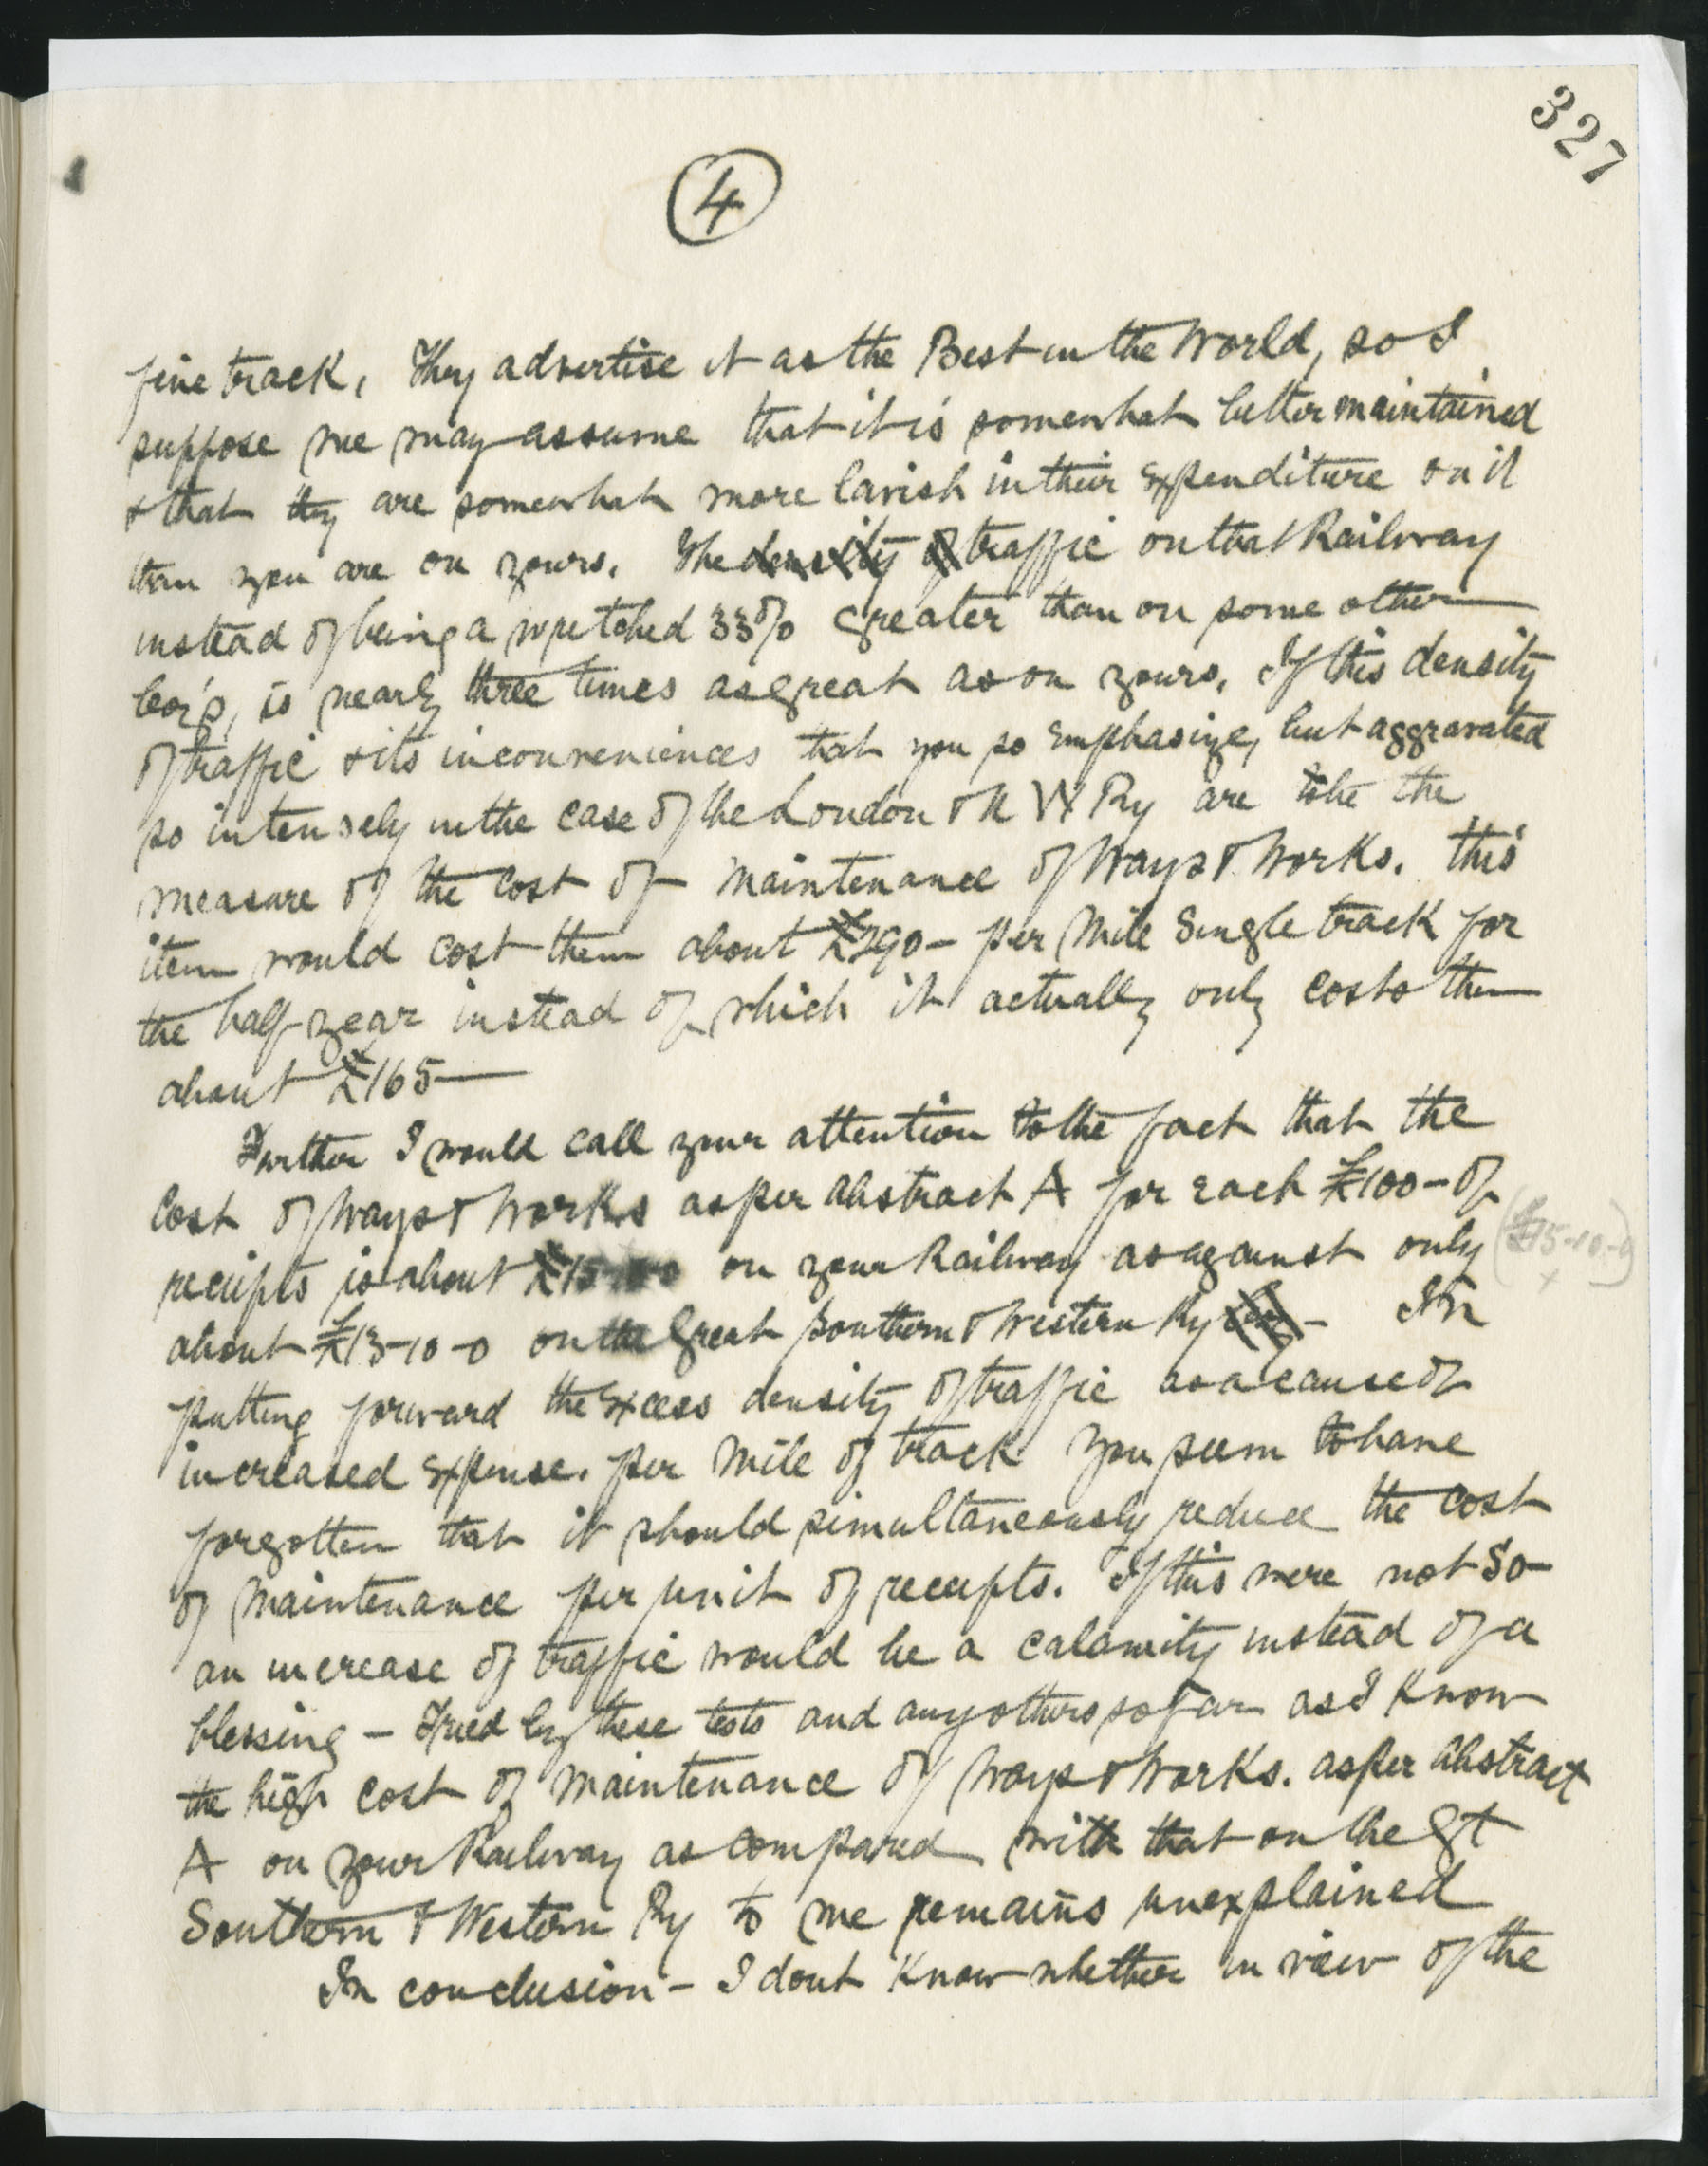 327
4
fine track. They advertise it as the Best in the World, so I
suppose we may assume that it is somewhat better maintained
& that they are somewhat more lavish in their expenditure on it
than you are on yours. The density of traffic on that Railway
instead of being a wretched 33% greater than on some other
Coy's, is nearly three times as great as on yours. If this density
of traffic & its inconveniences that you so emphasize, but aggravated
so intensely in the case of the London & N W Ry are to be the
measure of the cost of maintenance of Ways & Works. this
item would cost them about £290- per mile Single track for
the half year instead of which it actually only costs them
about £165-
Further I would call your attention to the fact that the
Cost of Ways & Works as per abstract A for each £100- of
receipts is about £15 on your Railway as against only (£15-10-0)
about £13-10-0 on the Great Southern & Western Ry Coy - In
putting forward the excess density of traffic as a cause of
increased expense. per mile of track you seem to have
forgotten that it should simultaneously reduce the cost
of maintenance per unit of receipts. If this were not so
an increase of traffic would be a calamity instead of a
blessing - Tried by these tests and any others so far as I know
the high cost of maintenance of Ways & Works. as per abstract
A on your Railway as compared with that on the Gt
Southern & Western Ry to me remains unexplained
In conclusion - I dont know whether in view of the